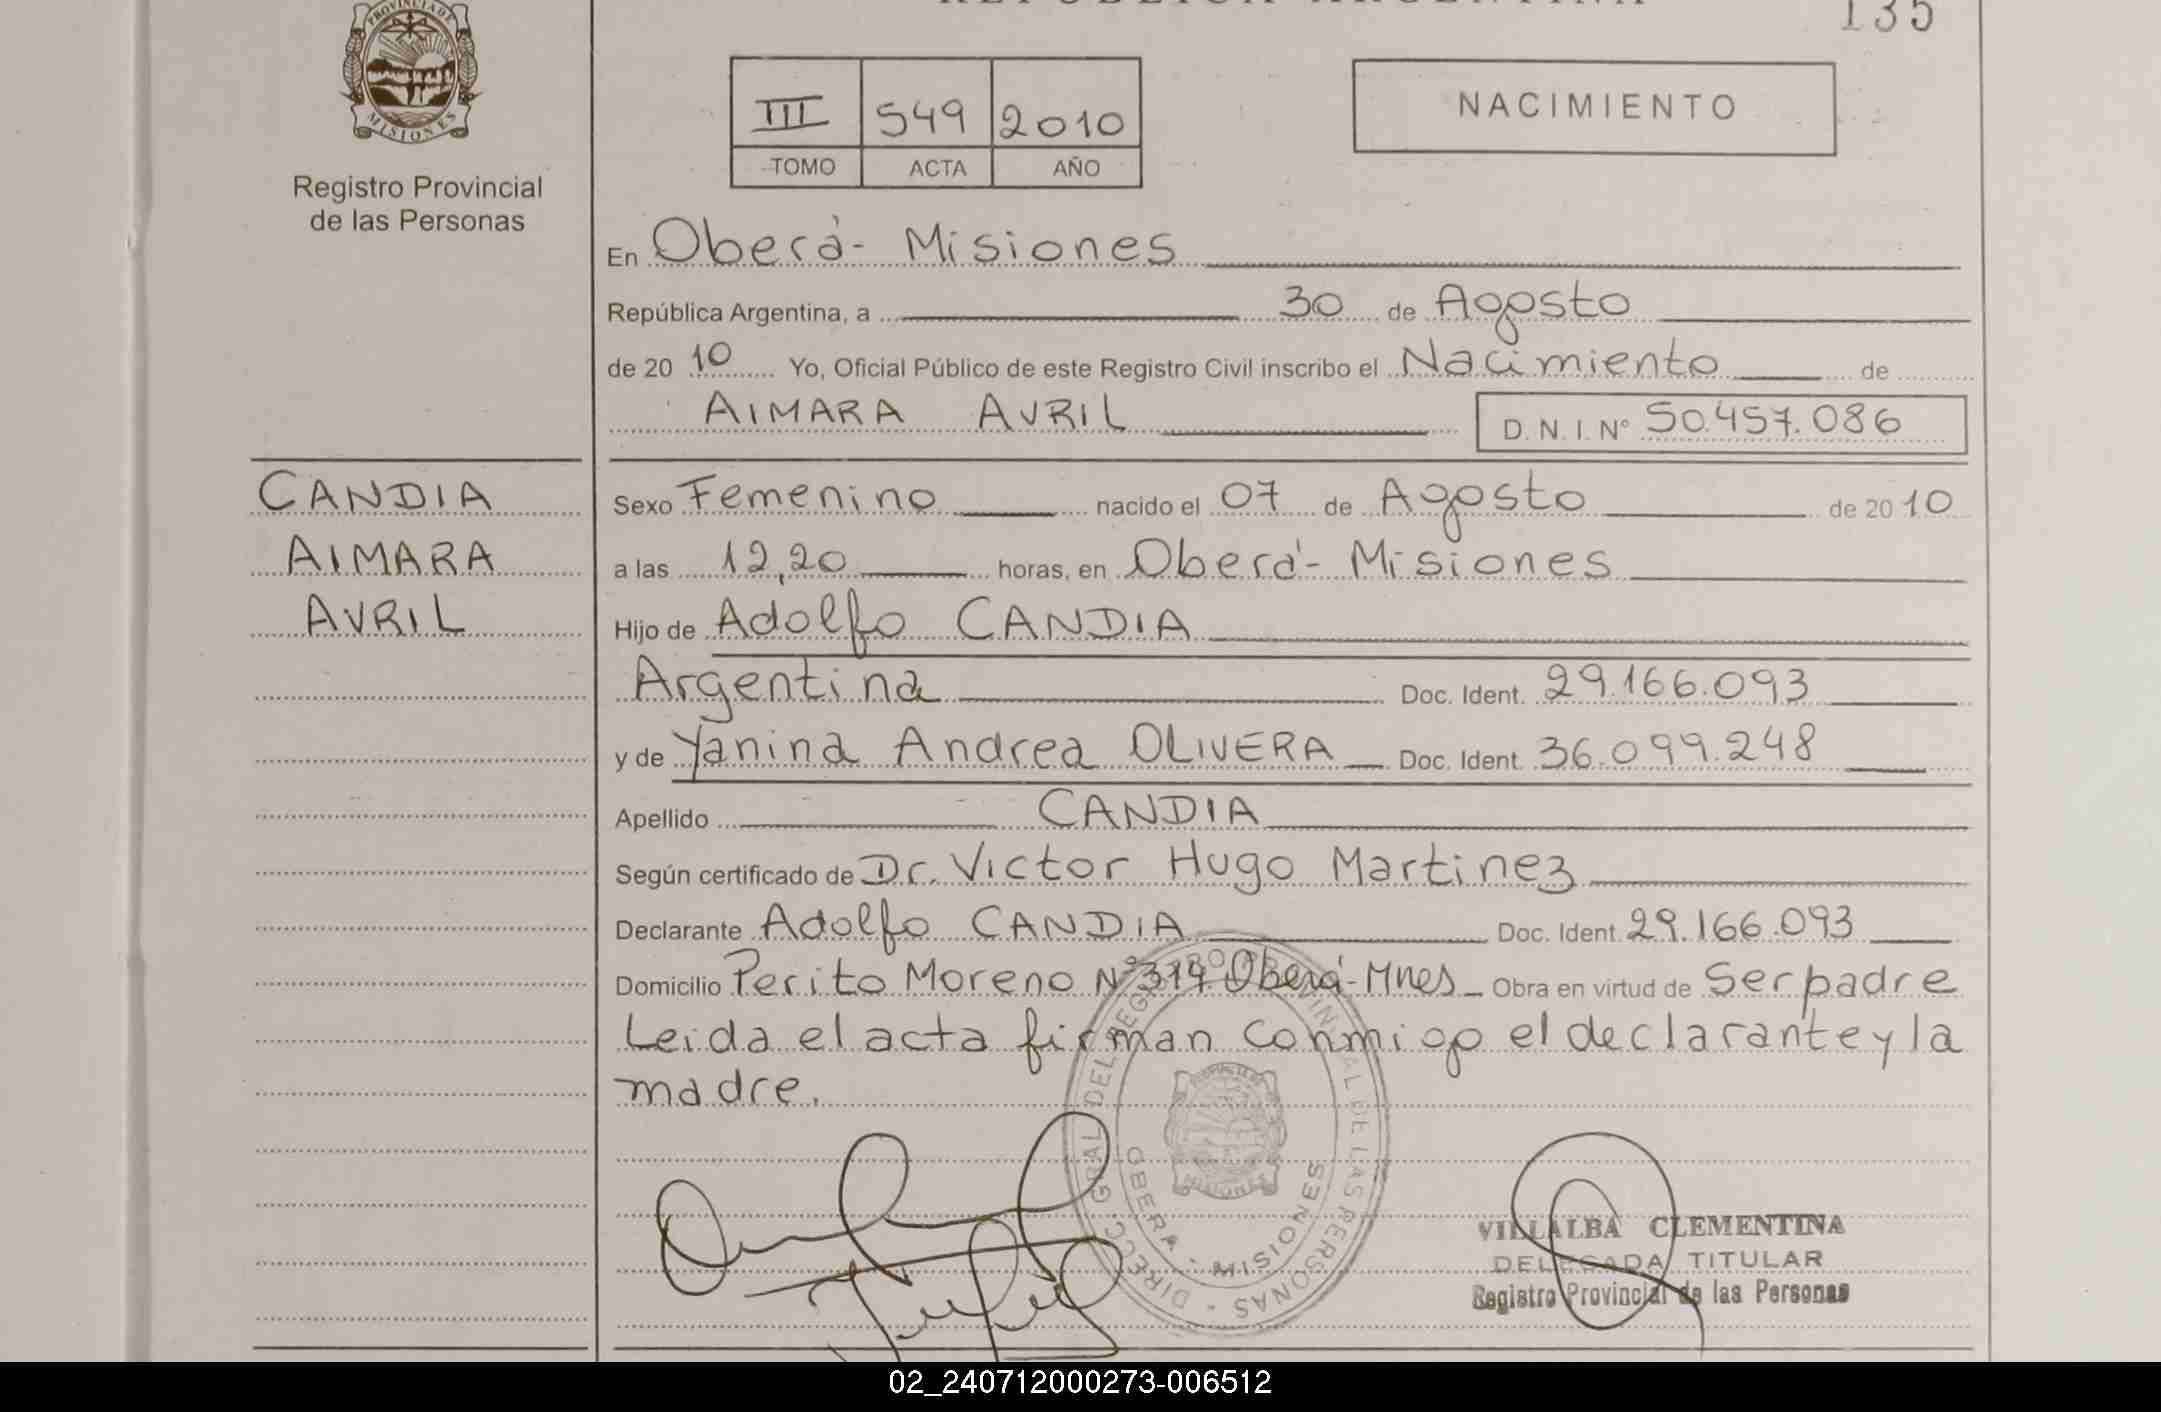 REPÚBLICA ARGENTINA
135
PROVINCIA DE
MISIONES
Registro Provincial
de las Personas
III 549 2010
TOMO ACTA AÑO
NACIMIENTO
En Oberá- Misiones
República Argentina, a 30 de Agosto
de 20 10 Yo, Oficial Público de este Registro Civil inscribo el Nacimiento de
AIMARA AVRIL D. N. I. Nº 50.457.086
CANDIA
AIMARA
AVRIL
Sexo Femenino nacido el 07 de Agosto de 20 10
a las 12,20 horas, en Oberá- Misiones
Hijo de Adolfo CANDIA
Argentina Doc. Ident. 29.166.093
y de Yanina Andrea OLIVERA Doc. Ident. 36.099.248
Apellido CANDIA
Según certificado de Dr. Victor Hugo Martinez
Declarante Adolfo CANDIA Doc. Ident. 29.166.093
Domicilio Perito Moreno Nº Oberá-Mnes Obra en virtud de Ser padre
Leida el acta firman conmigo el declarante y la
madre.
DIRECC. GRAL DEL REGISTRO PROVINCIAL DE LAS PERSONAS
OBERA - MISIONES
MISIONES
VILLALBA CLEMENTINA
DELEGADA TITULAR
Registro Provincial de las Personas
02_240712000273-006512